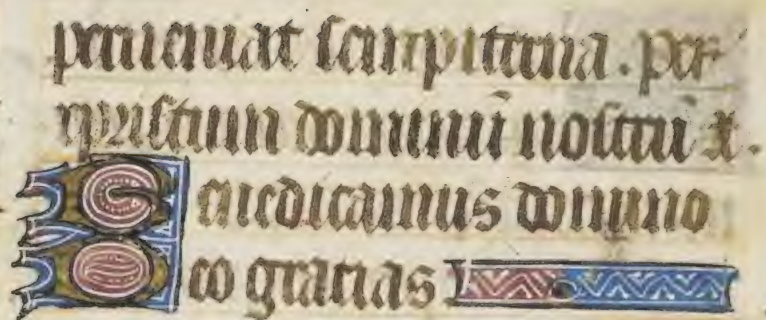 perueniat sempiterna. per
xpristum dominū nostrū x.
Benedicamus domino
Deo gracias